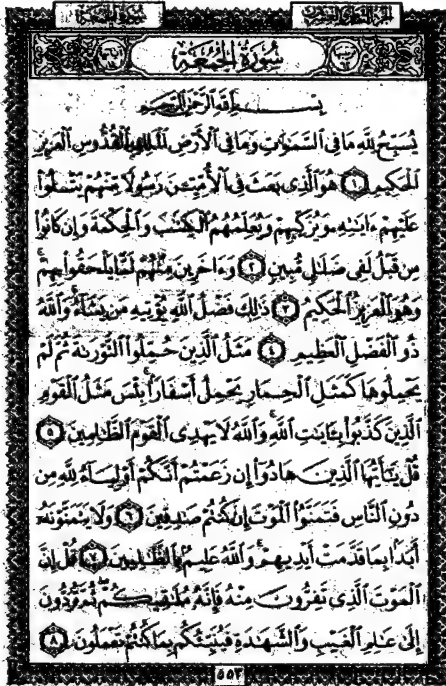 الجزء الثامن والعشرون سورة الجمعة
سُورَةُ الجُمُعَةِ
بِسْمِ اللَّهِ الرَّحْمَٰنِ الرَّحِيمِ
يُسَبِّحُ لِلَّهِ مَا فِي السَّمَٰوَٰتِ وَمَا فِي الْأَرْضِ الْمَلِكِ الْقُدُّوسِ الْعَزِيزِ
الْحَكِيمِ ١ هُوَ الَّذِي بَعَثَ فِي الْأُمِّيِّـۧنَ رَسُولًا مِّنْهُمْ يَتْلُوا۟
عَلَيْهِمْ ءَايَٰتِهِۦ وَيُزَكِّيهِمْ وَيُعَلِّمُهُمُ الْكِتَٰبَ وَالْحِكْمَةَ وَإِن كَانُوا۟
مِن قَبْلُ لَفِي ضَلَٰلٍ مُّبِينٍ ٢ وَءَاخَرِينَ مِنْهُمْ لَمَّا يَلْحَقُوا۟ بِهِمْ ۚ
وَهُوَ الْعَزِيزُ الْحَكِيمُ ٣ ذَٰلِكَ فَضْلُ اللَّهِ يُؤْتِيهِ مَن يَشَآءُ ۚ وَاللَّهُ
ذُو الْفَضْلِ الْعَظِيمِ ٤ مَثَلُ الَّذِينَ حُمِّلُوا۟ التَّوْرَىٰةَ ثُمَّ لَمْ
يَحْمِلُوهَا كَمَثَلِ الْحِمَارِ يَحْمِلُ أَسْفَارًۢا ۚ بِئْسَ مَثَلُ الْقَوْمِ
الَّذِينَ كَذَّبُوا۟ بِـَٔايَٰتِ اللَّهِ ۚ وَاللَّهُ لَا يَهْدِي الْقَوْمَ الظَّٰلِمِينَ ٥
قُلْ يَٰٓأَيُّهَا الَّذِينَ هَادُوٓا۟ إِن زَعَمْتُمْ أَنَّكُمْ أَوْلِيَآءُ لِلَّهِ مِن
دُونِ النَّاسِ فَتَمَنَّوُا۟ الْمَوْتَ إِن كُنتُمْ صَٰدِقِينَ ٦ وَلَا يَتَمَنَّوْنَهُۥٓ
أَبَدًۢا بِمَا قَدَّمَتْ أَيْدِيهِمْ ۚ وَاللَّهُ عَلِيمٌۢ بِالظَّٰلِمِينَ ٧ قُلْ إِنَّ
الْمَوْتَ الَّذِي تَفِرُّونَ مِنْهُ فَإِنَّهُۥ مُلَٰقِيكُمْ ۖ ثُمَّ تُرَدُّونَ
إِلَىٰ عَٰلِمِ الْغَيْبِ وَالشَّهَٰدَةِ فَيُنَبِّئُكُم بِمَا كُنتُمْ تَعْمَلُونَ ٨
٥٥٣